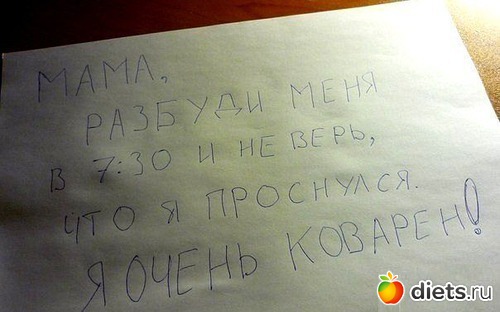 МАМА,
РАЗБУДИ МЕНЯ
В 7:30 И НЕ ВЕРЬ,
ЧТО Я ПРОСНУЛСЯ.
Я ОЧЕНЬ КОВАРЕН!
diets.ru